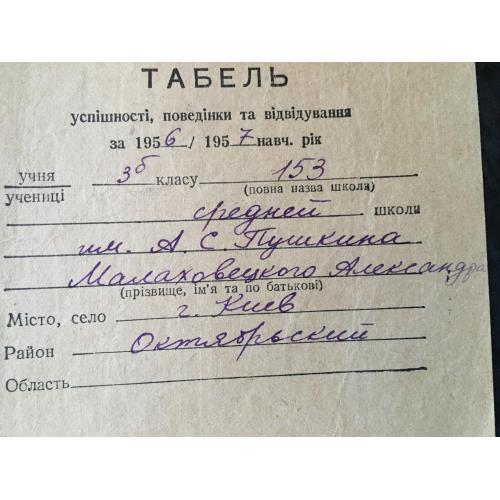 ТАБЕЛЬ
успішності, поведінки та відвідування
за 1956/1957 навч. рік
учня 3б класу 153
учениці (повна назва школи)
средней школи
им. А С. Пушкина
Малаховецкого Александра
(прізвище, ім'я та по батькові)
Місто, село г. Киев
Район Октябрьский
Область